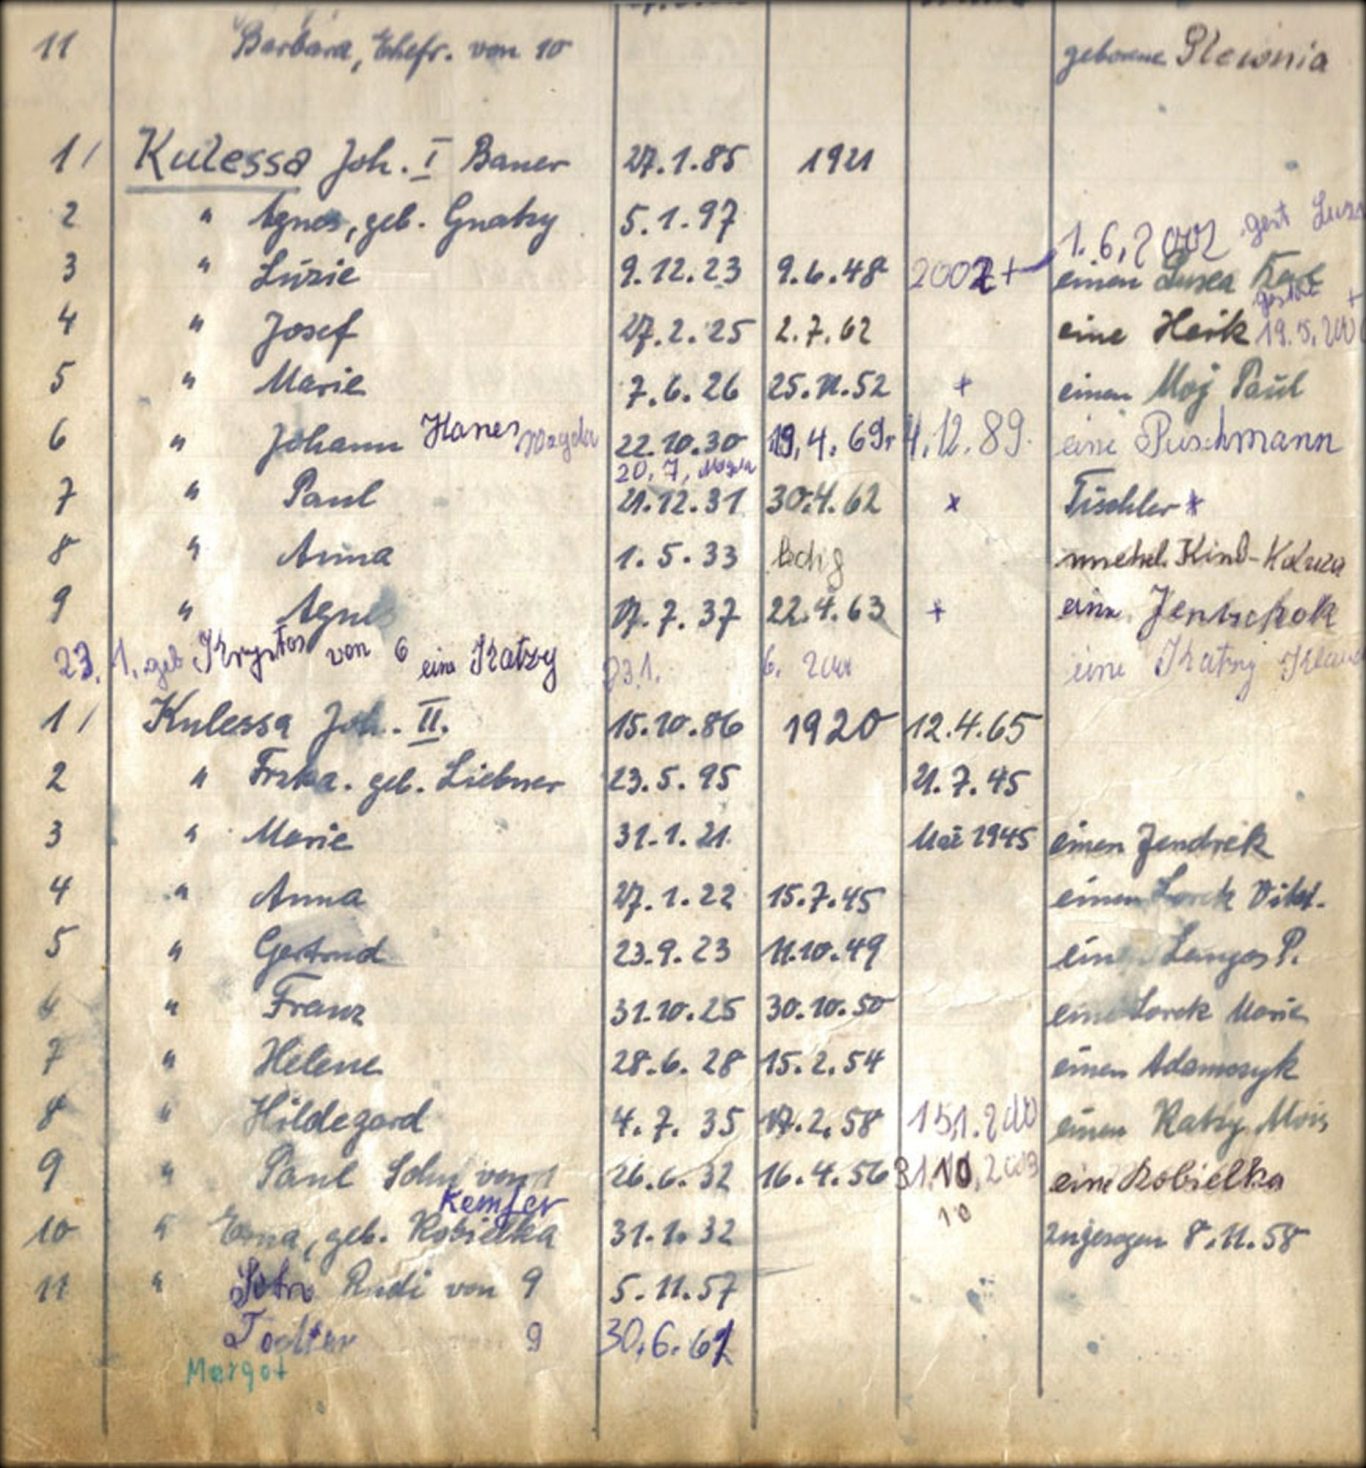 11 Barbara, Ehefr. von 10 geborene Slowonia
1/ Kulessa Joh. I Bauer 27.1.85 1921
2 " Agnes, geb. Gnatzy 5.1.97
1.6.2002 gest
3 " Luzie 9.12.23 9.6.48 2002+ einen
4 " Josef 27.2.25 2.7.62 eine Heik
5 " Marie 7.6.26 25.11.52 + einen Moj Paul
6 " Johann Hanes Magda 22.10.30 19.4.69 4.12.89. eine Puschmann
20.7.
7 " Paul 21.12.31 30.4.62 x Tischler x
8 " Anna 1.5.33 ledig unehel. Kind-
9 " Agnes 17.7.37 22.4.63 + Jentschok
23.1. geb von 6 eine Katzy 23.1. 6. eine Katzy
1/ Kulessa Joh. II. 15.10.86 1920 12.4.65
2 " Frzka. geb. Liebner 23.5.95 21.7.45
3 " Marie 31.1.21. Mai 1945 einen Jendrek
4 " Anna 27.1.22 15.7.45 einen Lorck Vikt.
5 " Gertrud 23.9.23 11.10.49 P.
6 " Franz 31.10.25 30.10.50 eine Lorck Marie
7 " Helene 28.6.28 15.2.54 einen Adamczyk
8 " Hildegard 4.7.35 17.2.58 einen Katzy
9 " Paul Sohn von 1 26.6.32 16.4.56 31.10.2003 eine Kobielka
Kemfer 10
10 " Erna, geb. Kobielka 31.1.32 zugezogen 8.11.58
11 " Sohn Rudi von 9 5.11.57
Tochter 9 30.6.61
Margot